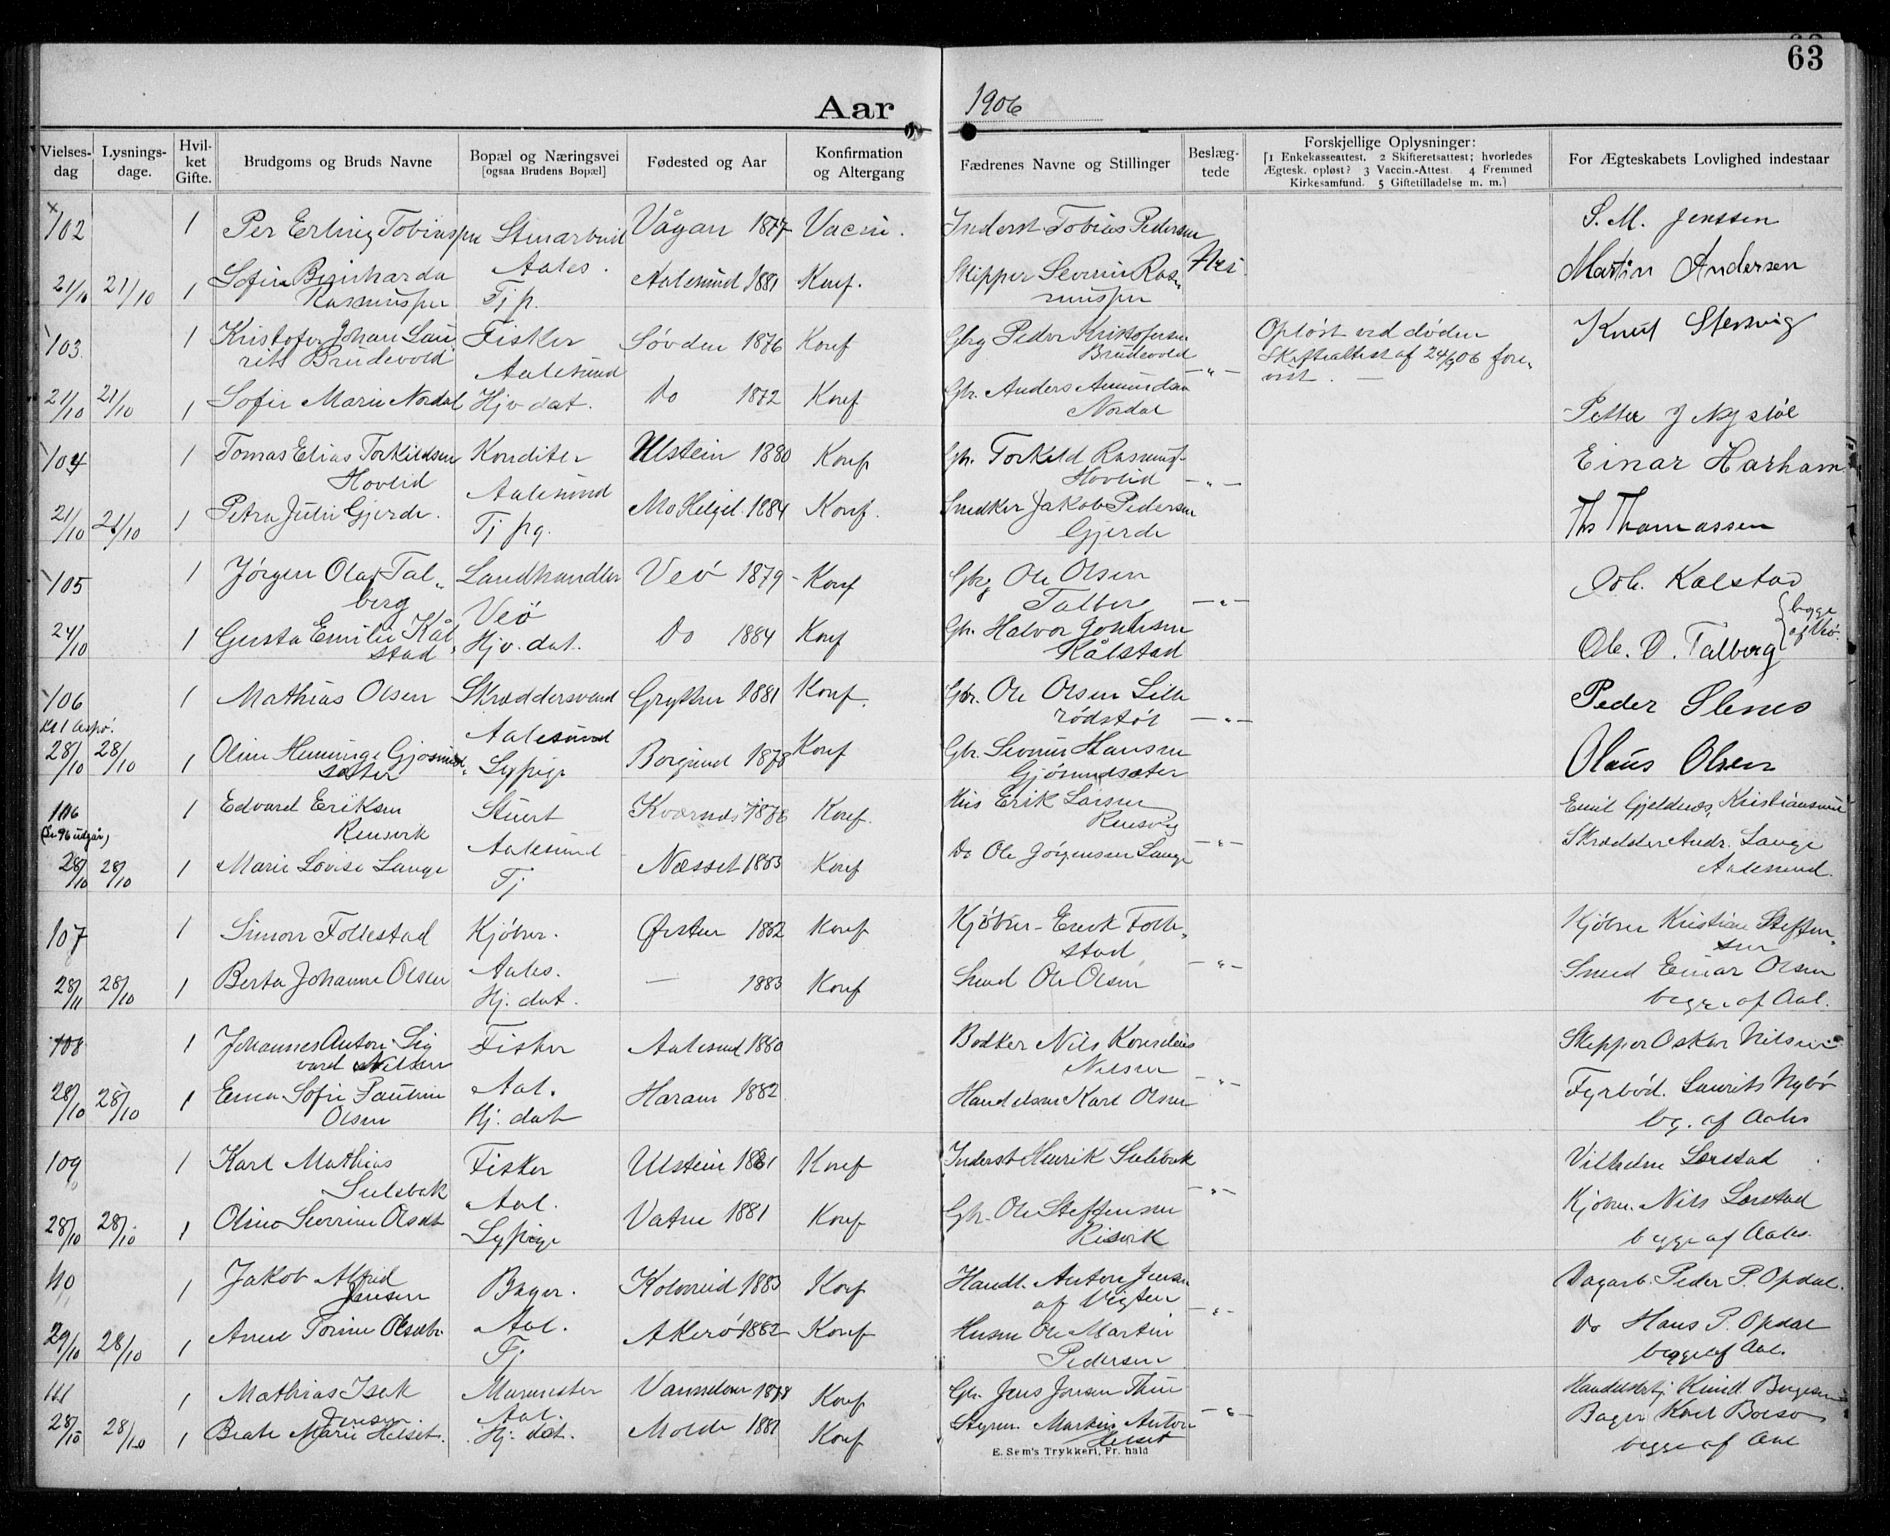 63
Aar 1906
Vielses-dag
Lysnings-dage.
Hvil-ket Gifte.
Brudgoms og Bruds Navne
Bopæl og Næringsvei [ogsaa Brudens Bopæl]
Fødested og Aar
Konfirmation og Altergang
Fædrenes Navne og Stillinger
Beslæg-tede
Forskjellige Oplysninger: [1 Enkekasseattest. 2 Skifteretsattest; hvorledes Ægtesk. opløst? 3 Vaccin.-Attest. 4 Fremmed Kirkesamfund. 5 Giftetilladelse m. m.]
For Ægteskabets Lovlighed indestaar
102 1 Per Erling Tobiassen Vågan 1877 Vacin. Inderst Tobias Pedersen S. M. Jenssen
Aales. Martin Andersen
21/10 21/10 1 Sofie Bernharda Rasmussen Tj p. Aalesund 1881 Konf. Skipper Severin Rasmussen
103 1 Kristofer Johan Laurits Brudevold Fisker Søvden 1876 Konf Gbrg Peder Kristofersen Brudevold Opløst ved døden Knut Stensvig
Aalesund Skifteattest af 24/9 06 forevist. —
21/10 21/10 1 Sofie Marie Nordal Hjv. dat. Do 1872 Konf Gbr. Anders Amundsen Nordal Petter J Nystøl
104 1 Tomas Elias Torkildsen Hovlid Konditer Ulstein 1880 Konf Gbr. Torkild Rasmus. Hovlid Einar Harham
Aalesund
21/10 21/10 1 Petra Julie Gjerde. Tj pg. Mo Helgel. 1884 Konf. Snedker Jakob Pedersen Gjerde Ths Thomassen
105 1 Jørgen Olaf Talberg Landhandler Veø 1879 Konf Gbrg Ole Olsen Talberg Joh. Kalstad
Veø
24/10 1 Gusta Emilie Kålstad Hjv. dat. Do 1884 Konf Gbr. Halvor Kålstad Ole. O. Talberg begge af Veø.
106 1 Mathias Olsen Skræddersvend Grytten 1881 Konf. Gbr. Ole Olsen Lille rødstøl Peder Slenes
Aalesund
28/10 28/10 1 Oline Hemminge Gjøsundsæter Sypige Borgund 1878 Konf Gbr. Severin Hansen Gjøsundsæter Olaus Olsen
106 (Nr 96 udgår) 1 Edvard Eriksen Rensvik Stuert Kværnes 1876 Konf. Hus Erik Larsen Rensvig Emil Gjeldnes, Kristiansund
Aalesund Skrædder Andr. Lange Aalesund.
28/10 28/10 1 Marie Lovise Lange Tj Næsset 1883 Konf Do Ole Jørgensen Lange
107 1 Simon Follestad Kjøbm. Ørsten 1882 Konf Kjøbm. Erik Follestad Kjøbm Kristian Steffensen
Aales. Smed Einar Olsen
28/11 28/10 1 Berta Johanne Olsen Hj. dat. — 1883 Konf Smed Ole Olsen begge af Aal.
108 1 Johannes Anton Sigvard Nilsen Fisker Aalesund 1880 Bødker Nils Kornelius Nilsen Skipper Oskar Nilsen
Aal. Fyrbød. Laurits Nybø
28/10 28/10 1 Erna Sofie Pauline Olsen Hj. dat Haram 1882. Handelsm Karl Olsen bg. af Aales
109 1 Karl Mathias Sulebak Fisker Ulstein 1881 Konf Inderst Henrik Sulebak Vilhelm Lorstad
Aal. Kjøbm. Nils Lorstad
28/10 28/10 1 Olina Severine Olsdt Sypige Vatne 1881 Konf Gbr. Ole Steffensen Risvik begge af Aales.
110 1 Jakob Alfred Jensen Bager. Kolvereid 1883 Konf Handl. Anton Jensen af Vigten Dagarb. Peder P. Opdal.
Aal. Do Hans P. Opdal
29/10 28/10 1 Anne Torine Olsdtr. Tj Akerø 1882 Konf Husm Ole Martin Pedersen begge af Aal.
111 1 Mathias Isak Jensen. Murmester 1878 Konf Gbr. Jens Jensen Kund Borgesen
Aal. Bager Karl
28/10 28/10 1 Beate Marie Helset. Hj. dat. Molde 1881 Konf Styrm. Martin Anton Helset begge af Aal
E. Sem's Trykkeri, Fr. hald